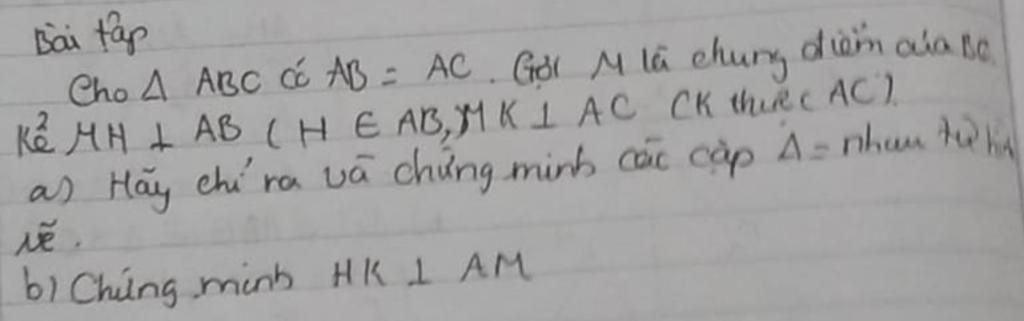 Bài tập
Cho Δ ABC có AB = AC. Gọi M là chung điểm của BC.
Kẻ MH ⊥ AB (H ∈ AB, MK ⊥ AC (K thuộc AC).
a) Hãy chỉ ra và chứng minh các cặp Δ = nhau từ hình
vẽ.
b) Chứng minh HK ⊥ AM